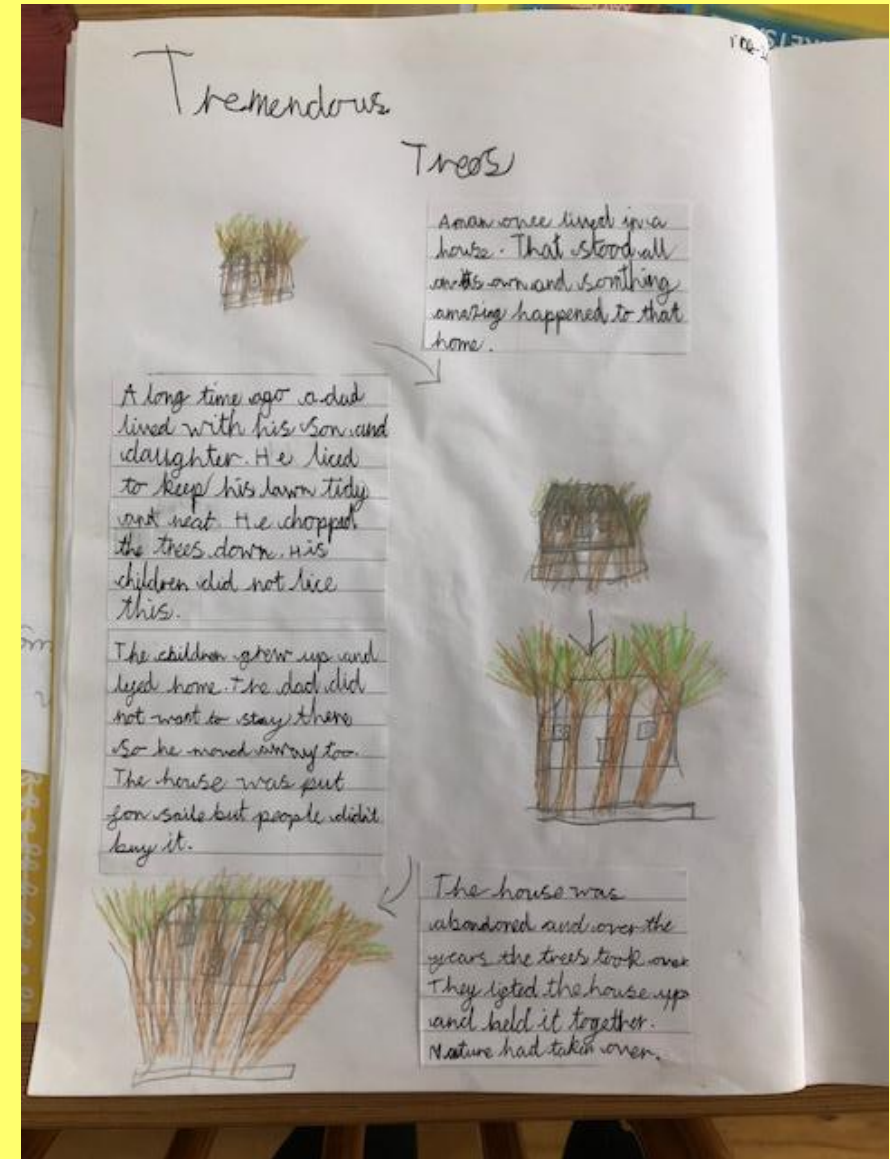 Tremendous
Trees
A man once lived in a
house. That stood all
on its own and somthing
amazing happened to that
home.
A long time ago a dad
lived with his son and
daughter. He liced
to keep his lawn tidy
and neat. He chopped
the trees down. His
children did not lice
this.
The children grew up and
home. The dad did
not want to stay there
so he moved away too.
The house was put
saile but people didn't
buy it.
The house was
abandoned and over the
years the trees took over
They the house up
and held it together.
Nature had taken over.